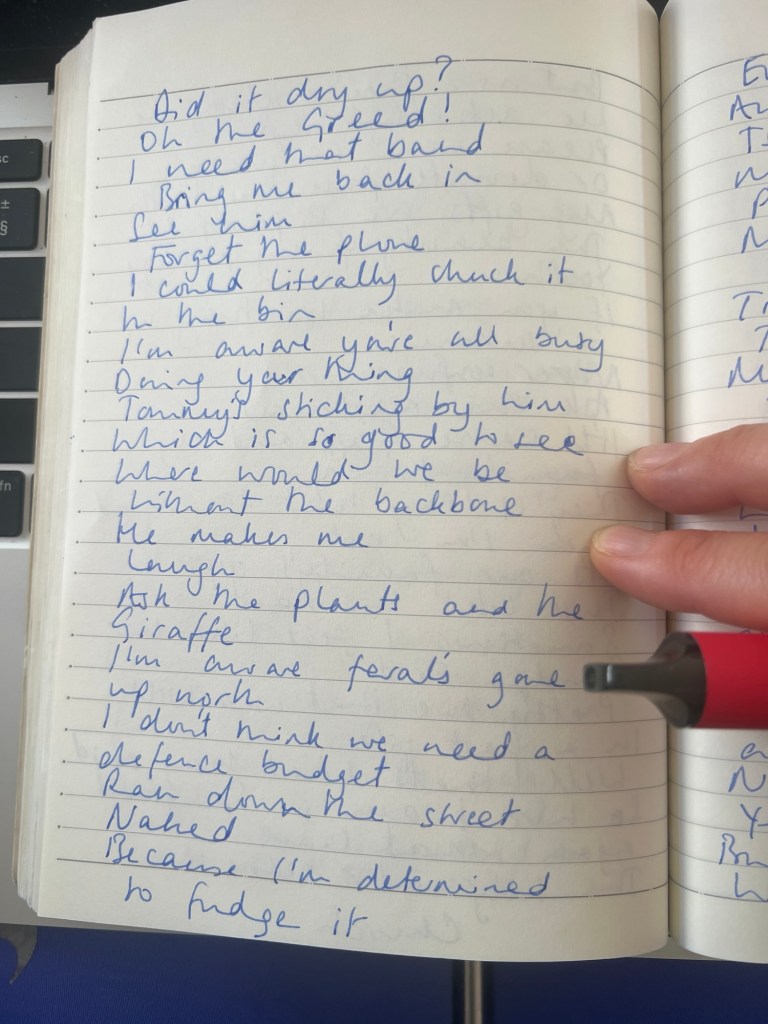 Did it dry up?
Oh the Greed!
I need that band
Bring me back in
See him
Forget the phone
I could literally chuck it
In the bin
I'm aware you're all busy
Doing your thing
Tommy's sticking by him
Which is so good to see
Where would we be
Without the backbone
He makes me
laugh
Ask the plants and the
Giraffe
I'm aware feral's gone
up north
I don't think we need a
defence budget
Ran down the street
Naked
Because I'm determined
to fudge it